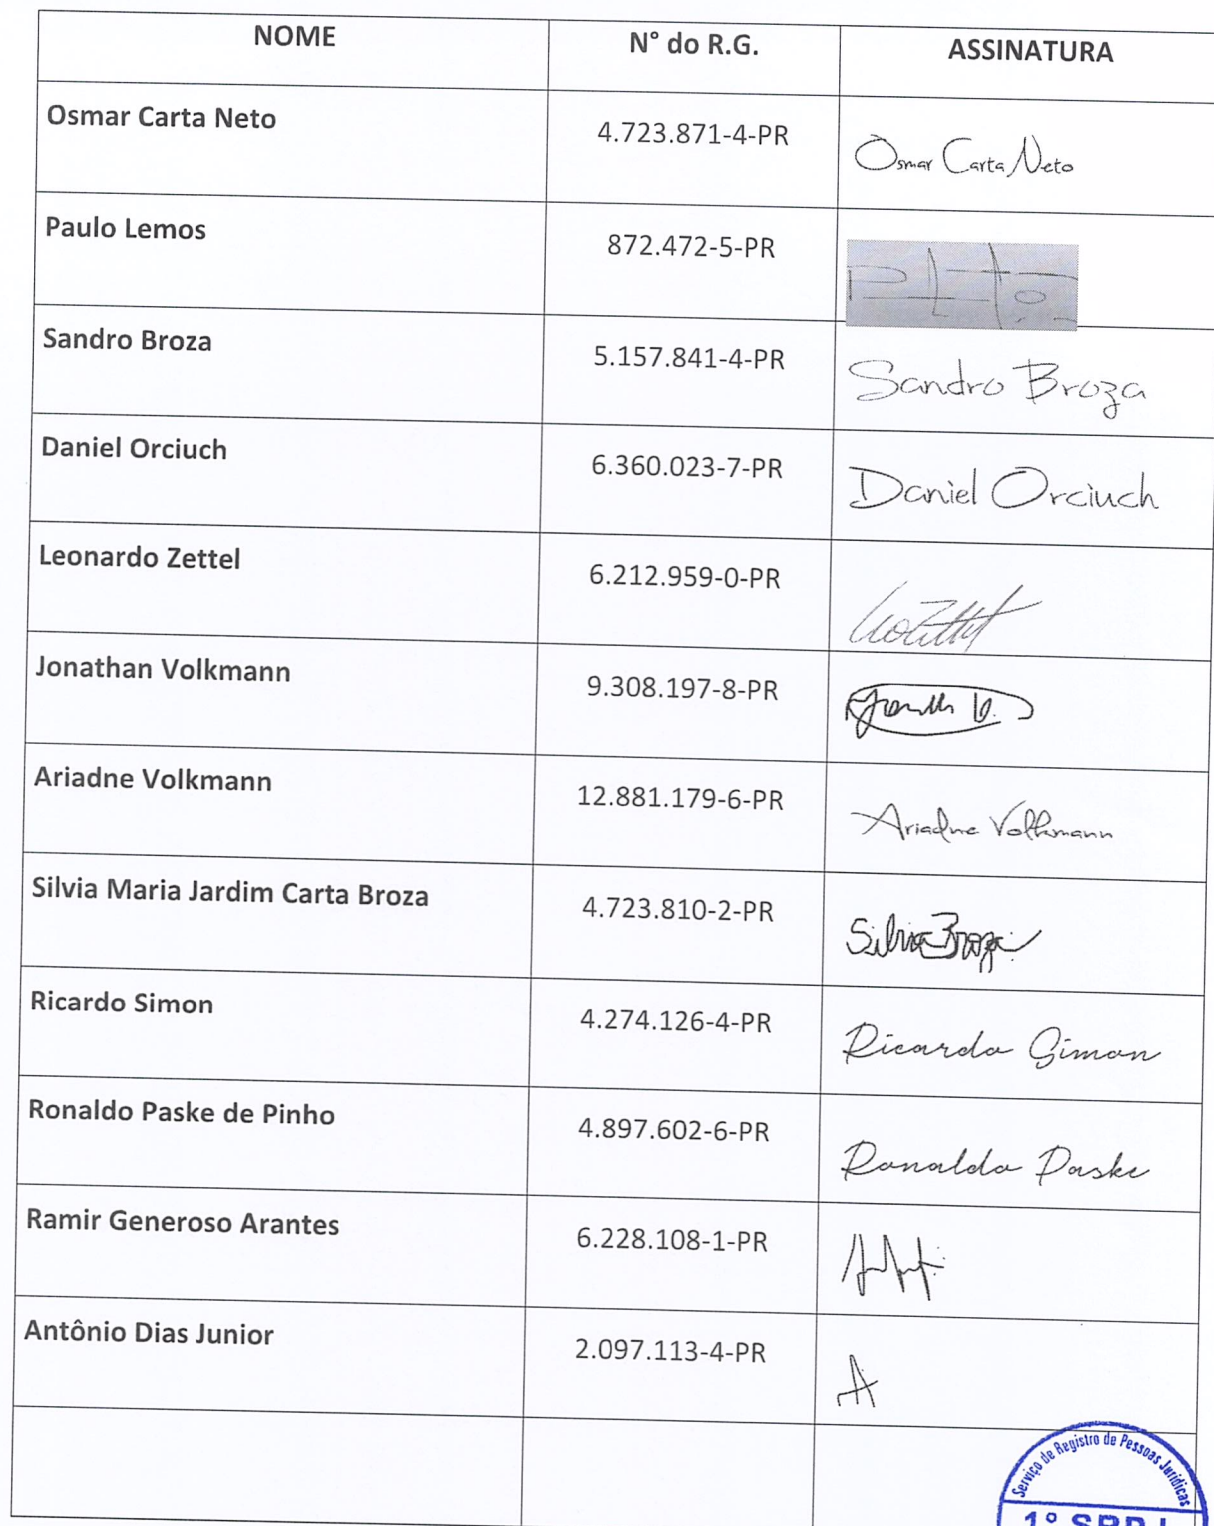 NOME N° do R.G. ASSINATURA
Osmar Carta Neto 4.723.871-4-PR Osmar Carta Neto
Paulo Lemos 872.472-5-PR
Sandro Broza 5.157.841-4-PR Sandro Broza
Daniel Orciuch 6.360.023-7-PR Daniel Orciuch
Leonardo Zettel 6.212.959-0-PR
Jonathan Volkmann 9.308.197-8-PR
Ariadne Volkmann 12.881.179-6-PR Ariadne Volkmann
Silvia Maria Jardim Carta Broza 4.723.810-2-PR Silvia Broza
Ricardo Simon 4.274.126-4-PR Ricardo Simon
Ronaldo Paske de Pinho 4.897.602-6-PR Ronaldo Paske
Ramir Generoso Arantes 6.228.108-1-PR
Antônio Dias Junior 2.097.113-4-PR
Serviço de Registro de Pessoas Jurídicas